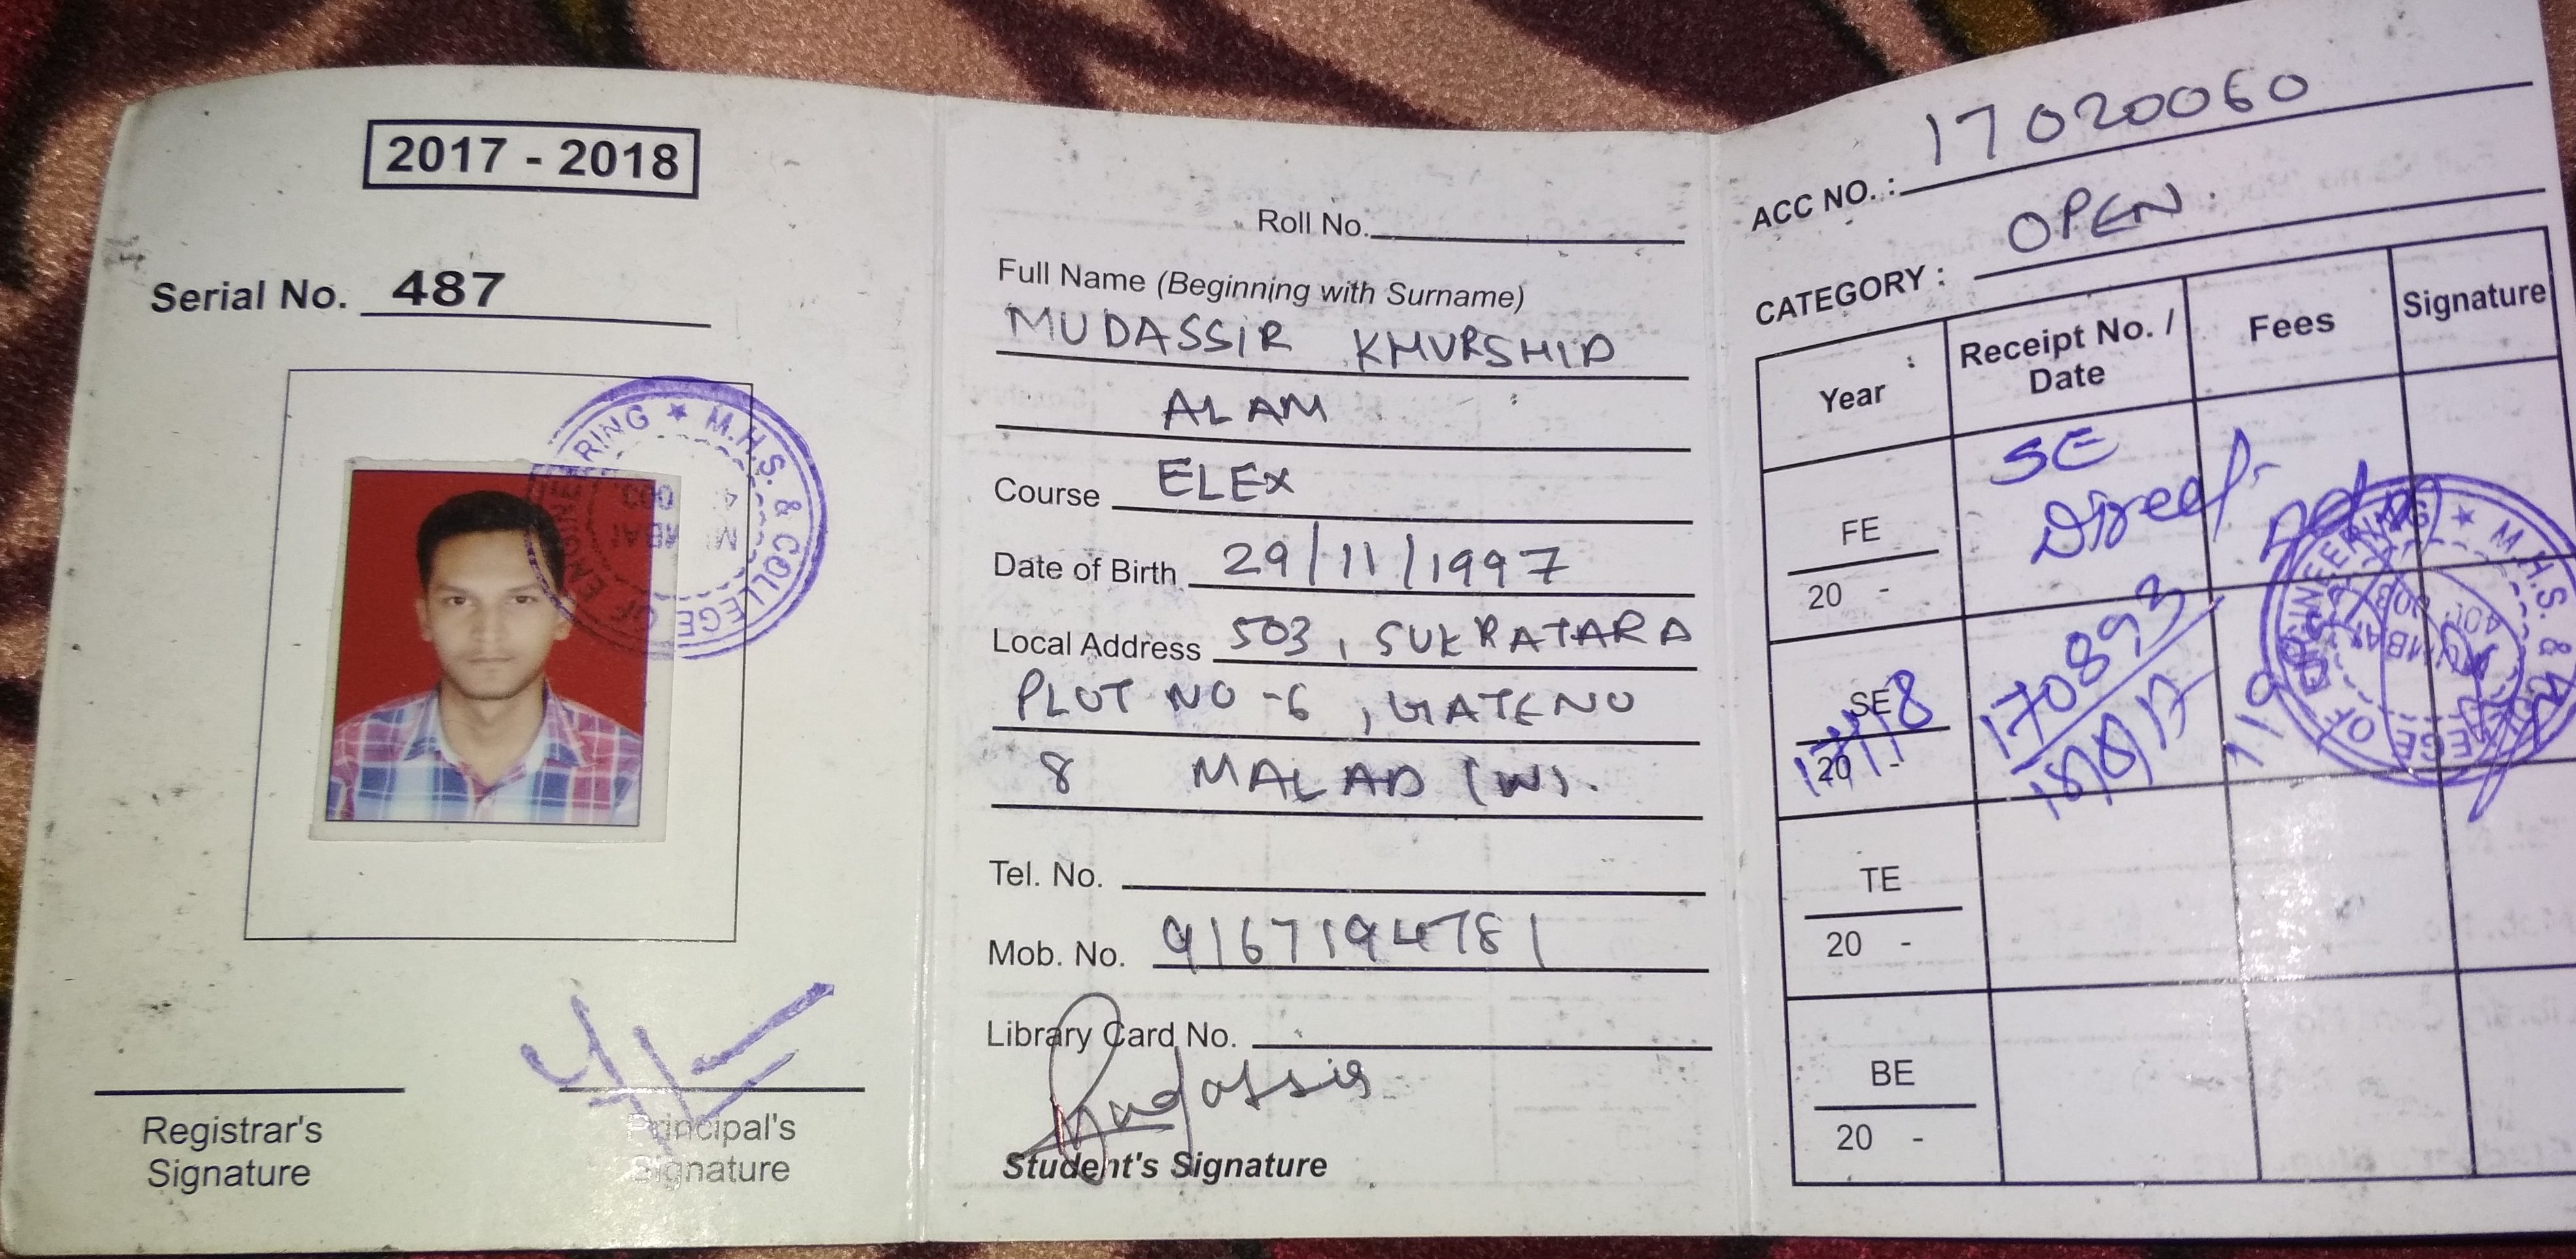 2017 - 2018
Serial No. 487
RING ★ M.H.S. & COLLEGE OF ENGINE
Registrar's
Signature
Principal's
Signature
Roll No.
Full Name (Beginning with Surname)
MUDASSIR KHURSHID
ALAM
Course ELEX
Date of Birth 29/11/1997
Local Address 503, SUKRATARA
PLOT NO -6, GATE NO
8 MALAD (W).
Tel. No.
Mob. No. 9167194781
Library Card No.
Mudassir
Student's Signature
ACC NO. : 17020060
CATEGORY : OPEN.
Year Receipt No. / Date Fees Signature
FE
20 -
SE
Direct
SE
20 -
170893
18/8/17
TE
20 -
BE
20 -